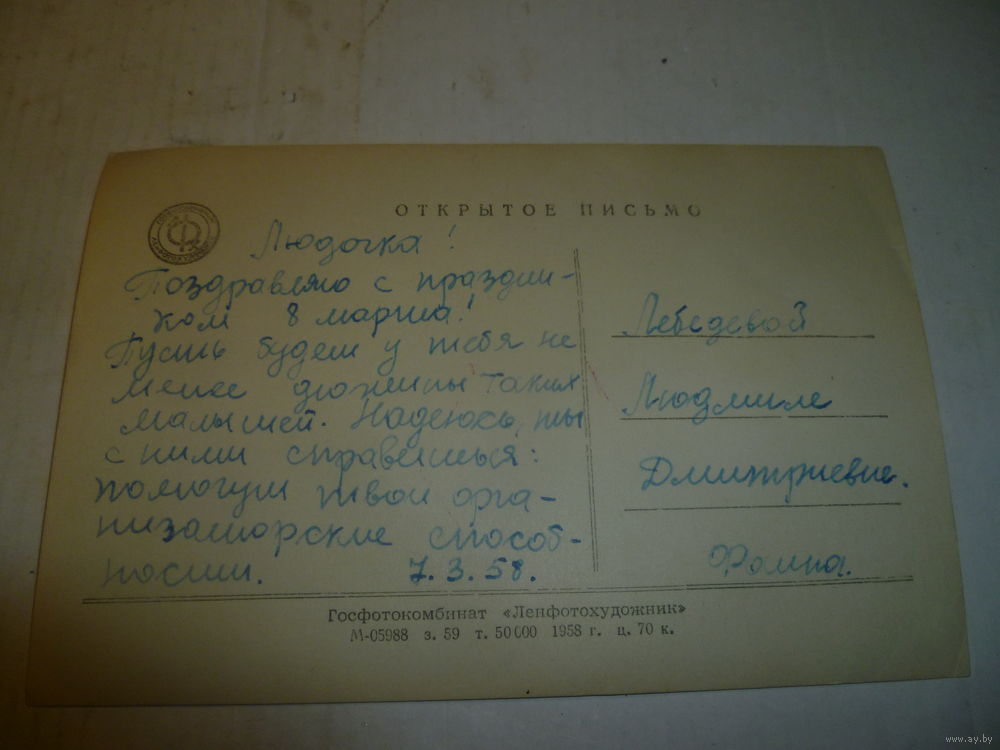 ОТКРЫТОЕ ПИСЬМО
Людочка!
Поздравляю с праздни-
ком 8 марта!
Пусть будет у тебя не
менее дюжины таких
малышей. Надеюсь, ты
с ними справишься:
помогут твои орга-
низаторские способ-
ности. 7.3.58.
Лебедевой
Людмиле
Дмитриевне.
Госфотокомбинат «Ленфотохудожник»
М-05988 з. 59 т. 50000 1958 г. ц. 70 к.
www.ay.by